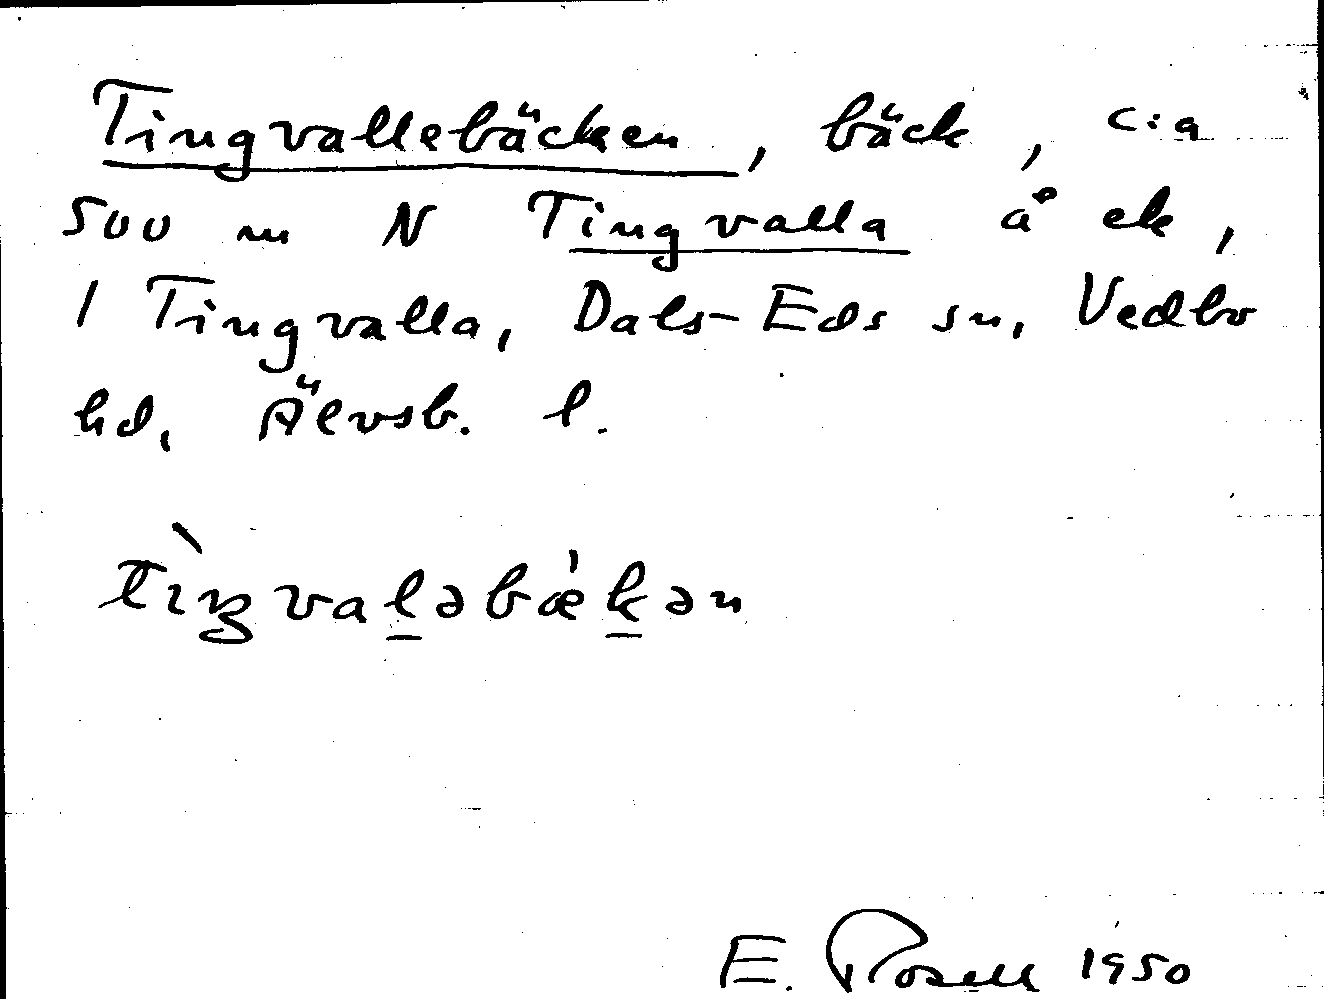 Tingvallebäcken, bäck, c:a
500 m N Tingvalla å ek,
1 Tingvalla, Dals-Eds sn, Vedbo
hd, Älvsb. l.
tìŋvaləbækən
E. Rosell 1950